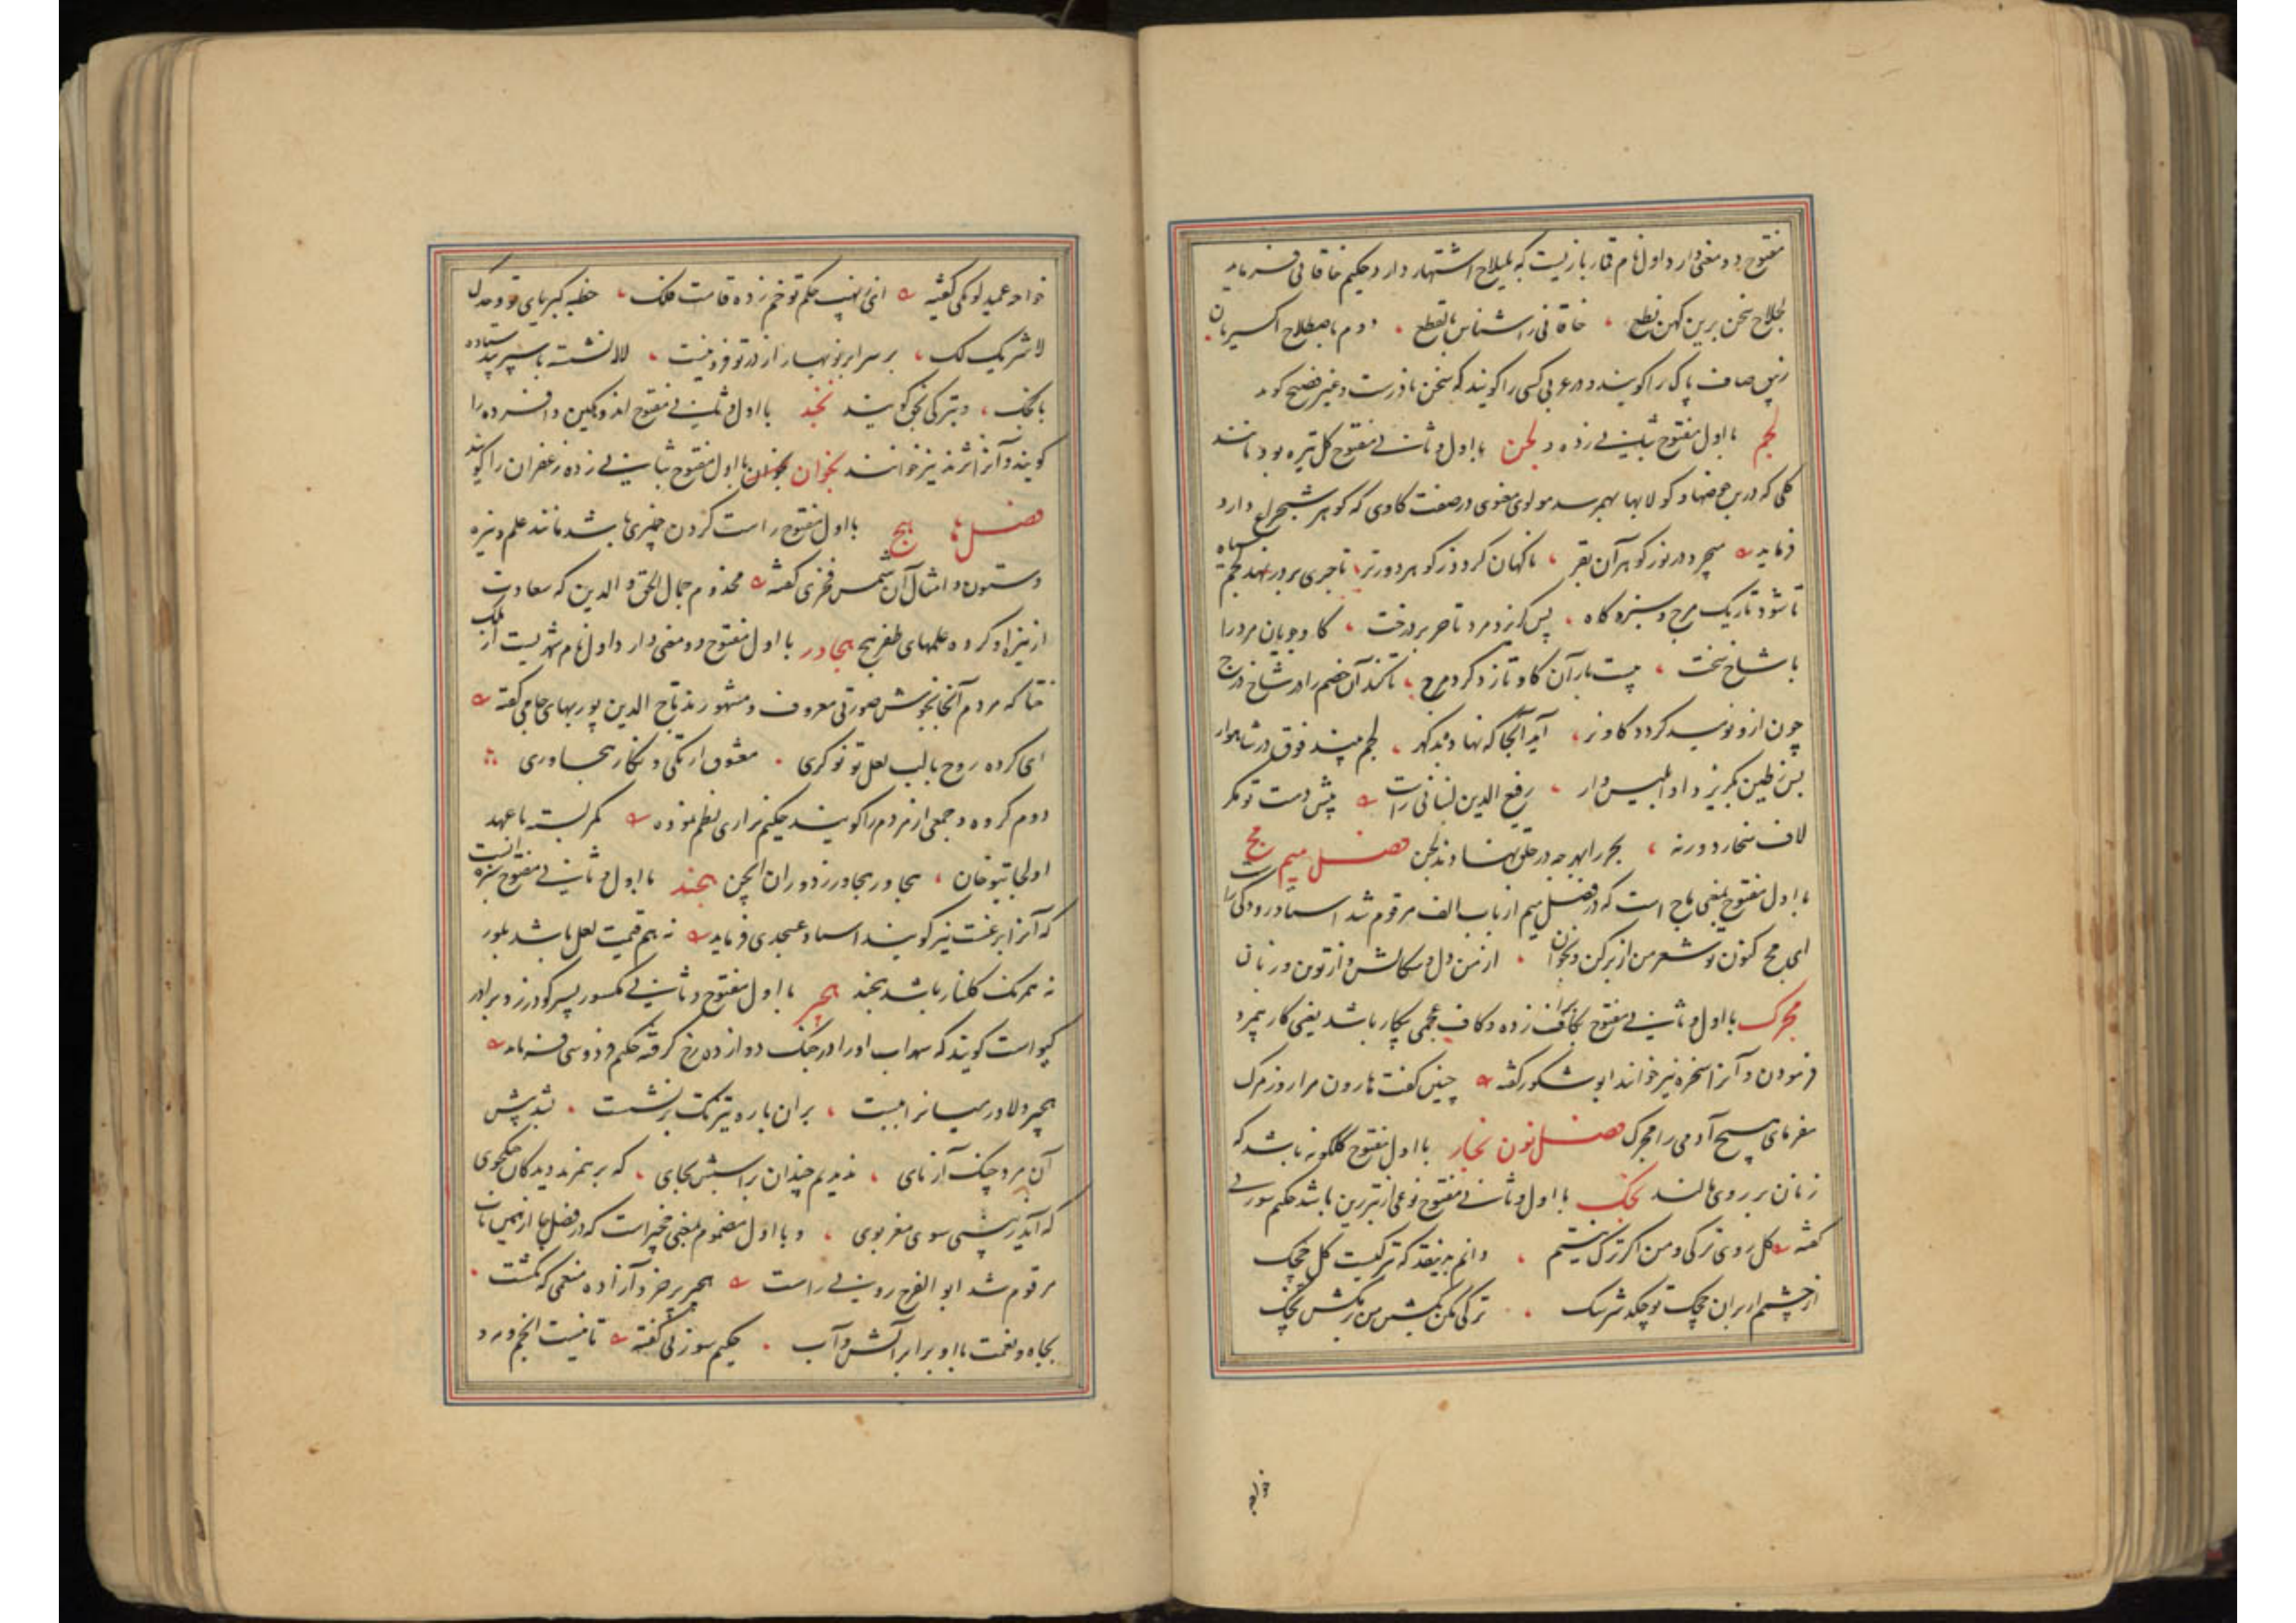 مفتوح دو معنی دارد اول نام قمار بازیست که بلیلاج اشتهار دارد حکیم خاقانی فرماید
لجلاج سخن برین کهن نطع خاقانی را شناس بالقطع دوم باصطلاح اکسیریان
زیبق صاف پاک را گویند و در عربی کسی را گویند که سخن نادرست و غیر فصیح گوید
لجم با اول مفتوح بثانی زده و لجن با اول و ثانی مفتوح گل تیره بود مانند
گلی که در بن حوضها و کولابها بهم رسد مولوی معنوی در صفت گاوی که گوهر شبچراغ دارد
فرماید میچرد در نور گوهر آن بقر ناگهان گردد ز گوهر دورتر تاجری بر در نهد لجم سیاه
تا شود تاریک مرج و سبزه گاه پس گریزد مرد تاجر بر درخت گاو جویان مرد را
با شاخ سخت بیست بار آن گاو تازد گرد مرج تا کند آن خصم را در شاخ درج
چون ازو نومید گردد گاو نر آید آنجا که نهاده بد گهر لجم بیند فوق در شاهوار
پس ز طین بگریزد او ابلیس وار رفیع الدین لنبانی راست پیش دست تو مگر
لاف سخا زد ورنه بحر را بهر چه در حلق نهادند لجن فصل میم مج
با اول مفتوح بمعنی ماج است که در فصل میم از باب الف مرقوم شد استاد رودکی راست
ای مج کنون تو شعر من از بر کن و بخوان از من دل و سگالش و از تو تن و زبان
مجرگ با اول و ثانی مفتوح برا زده و کاف عجمی بیگار باشد یعنی کار بیمزد
فرمودن و آنرا سخره نیز خوانند ابو شکور گفته چنین گفت هارون مرا روز مرگ
مفرمای هیچ آدمی را مجرگ فصل نون نجار با اول مفتوح گلگونه باشد که
زنان بر روی مالند نجک با اول و ثانی مفتوح نوعی از تبرزین باشد حکیم سوزنی
گفته گل روی ترکی و من اگر ترک نیستم دانم بدینقدر که ترکیست گل چچک
از چشمم ار بران چچک تو چکد سرشک ترکی مکن بکشتن من بر مکش نجک
خواجه
خواجه عمید لومکی گفته ای نهیب حکم تو خم زده قامت فلک خطبه کبریای تو وحدک
لا شریک لک بر سر ابر نوبهار از در تو فروتنیست لاله نشسته با سپر بید ستاده
با نجک و بترکی نجق گویند نجند با اول و ثانی مفتوح اندوهگین و افسرده را
گویند و آنرا نژند نیز خوانند نجوان با اول مفتوح بثانی زده زعفران را گویند
فصل ها هج با اول مفتوح راست کردن چیزی باشد مانند علم و نیزه
و ستون و امثال آن شمس فخری گفته مخدوم جمال الحق و الدین که سعادت
از نیزه او کرده علمهای ظفر هج هجاور با اول مفتوح دو معنی دارد اول نام شهریست از ملک
ختا که مردم آنجا بخوش صورتی معروف و مشهورند تاج الدین پور بهای جامی گفته
ای کرده روح با لب لعل تو نوکری معشوق ارتکی و نگار هجاوری
دوم گروه و جمعی از مردم را گویند حکیم نزاری نظم نموده کمر بسته با عهد
اولجایتو خان هجاور هجاور ز دوران انجمن هجند با اول و ثانی مفتوح سبزه ایست
که آنرا برغست نیز گویند استاد عسجدی فرماید نه هم قیمت لعل باشد بلور
نه همرنگ گلنار باشد هجند هجیر با اول مفتوح و ثانی مکسور پسر گودرز و برادر
گیو است گویند که سهراب او را در جنگ دوازده رخ گرفته حکیم فردوسی فرماید
هجیر دلاور میانرا ببست بران باره تیز تک برنشست بشد پیش
آن مرد چنگ آزمای ندیدیم چندان براسبش بجای که بر هم زند دیدگان جنگجوی
که آید ز بینی سوی مغز بوی و با اول مضموم بمعنی هخیر است که در فصل ها از همین باب
مرقوم شد ابو الفرج رونی راست هجیر بر خرد آزاده منعمی که گذشت
بجاه و نعمت با او برابر آتش و آب حکیم سوزنی گفته تا نیست انجم و مه و